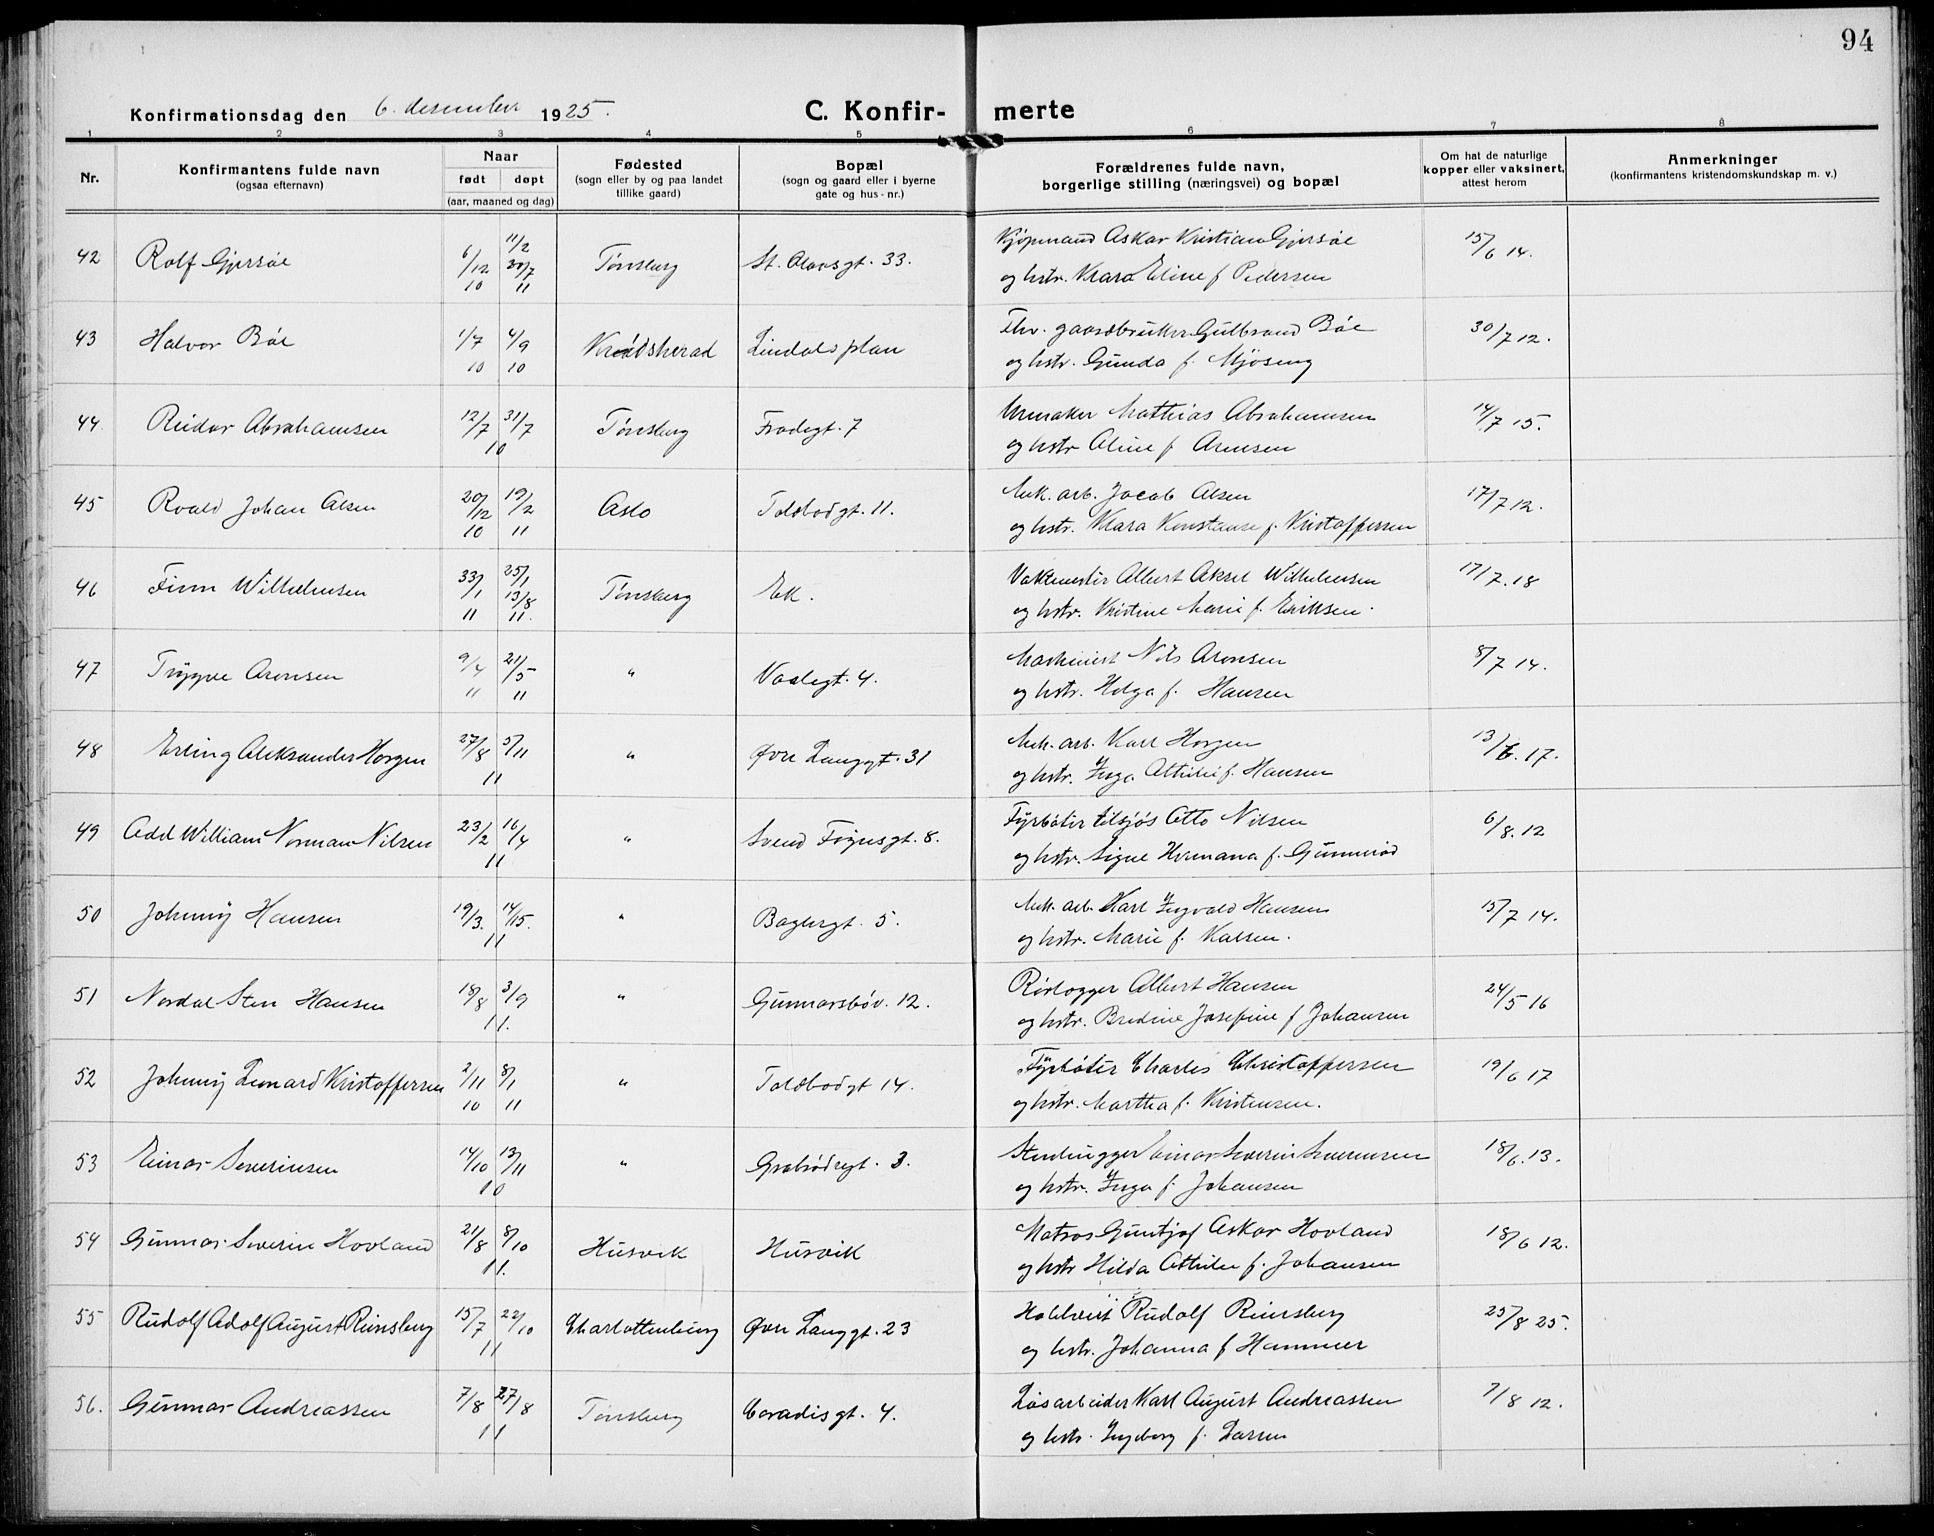 94
Konfirmationsdag den 6. desember 1925.
C. Konfir- merte
1 2 3 4 5 6 7 8
Nr.
Konfirmantens fulde navn
(ogsaa efternavn)
Naar
født døpt
(aar, maaned og dag)
Fødested
(sogn eller by og paa landet
tillike gaard)
Bopæl
(sogn og gaard eller i byerne
gate og hus-nr.)
Forældrenes fulde navn,
borgerlige stilling (næringsvei) og bopæl
Om hat de naturlige
kopper eller vaksinert,
attest herom
Anmerkninger
(konfirmantens kristendomskundskap m. v.)
42 Rolf Gjersøe 6/12 10 11/2 30/7 11 Tønsberg St. Olavsgt. 33. Kjøpmand Oskar Kristian Gjersøe 15/6 14.
og hstr. Klara Eline f Pedersen
43 Halvor Bøe 1/7 10 4/9 10 Krødsherad Lindals plan Fhv. gaardbruker Gulbrand Bøe 30/7 12.
og hstr. Gunda f. Mjøseng
44. Reidar Abrahamsen 12/7 31/7 10 Tønsberg Frodegt. 7 Urmaker Mathias Abrahamsen 14/7 15.
og hstr Aline f Arensen
45 Roald Johan Olsen 20/12 10 19/2 11 Oslo Toldbodgt. 11. Mek. arb. Jacob Olsen 17/7 12.
og hstr. Klara Konstanse f. Kristoffersen
46 Finn Wilhelmsen 33/1 11 25/1 13/8 11. Tønsberg Ek. Vaktmester Albert Aksel Wilhelmsen 17/7. 18
og hstr. Kristine Marie f. Eriksen.
47 Trygve Aronsen 9/4 11 21/5 11 " Valegt. 4. Maskinist Nils Aronsen 8/7 14.
og hstr. Helga f. Hansen
48 Erling Aleksander Horgen 27/8 5/11 11 " Øvre Langgt. 31 Mek. arb. Karl Horgen 13/6. 17.
og hstr. Inga Othilie f. Hansen
49 Odd William Norman Nilsen 23/2 16/4 11 " Svend Foynsgt. 8. Fyrbøter tilsjøs Otto Nilsen 6/8. 12
og hstr. Signe Hermana f. Gunnerød
50 Johnny Hansen 19/3. 14/15. 11 " Baglergt. 5. Mek. arb. Karl Ingvald Hansen 15/7 14.
og hstr. Marie f. Kalsen.
51 Nordal Sten Hansen 18/8 3/9 11. " Gunnarsbøv. 12. Rørlægger Albert Hansen 24/5 16
og hstr. Bredine Josefine f Johansen
52 Johnny Leonard Kristoffersen 2/11 10 8/1 11 " Toldbodgt 14. Fyrbøter Charles Christoffersen 19/6 17
og hstr. Martha f. Kristensen.
53 Einar Severinsen 14/10 13/11 10 " Grabrødregt. 3. Einar Severin Severinsen 18/6. 13.
og hstr. Inga f. Johansen
54 Gunnar Severin Hovland 21/8 8/10 11. Husvik Husvik Matros Oskar Hovland 18/6 12.
og hstr Hilda Othilie f. Johansen
55 Rudolf Adolf August Reinsberg 15/7 22/10 11 Charlottenburg Øvre Langgt. 23 Rudolf Reinsberg 25/8 25.
og hstr. Johanna f Hammer
56. Gunnar Andreassen 7/8 27/8 11 Tønsberg Conradisgt. 4. Løsarbeider Karl August Andreassen 7/8 12.
og hstr. Ingeborg f. Larsen